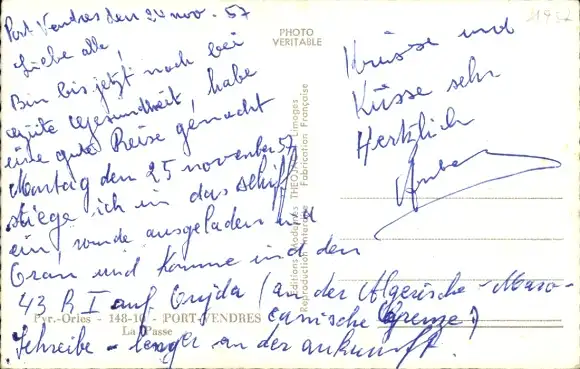 Port Vendres den 24 nov. 57
Liebe alle,
Bin bis jetzt noch bei
gute Gesundheit, habe
eine gute Reise gemacht
Montag den 25 november 57
stiege ich in das schiff
ein, wurde ausgeladen und
Oran und komme und den
43 R I auf Oujda (an der Algerische - Maro-
canische Grenze)
Schreibe - lenger an der ankunft.
Krüsse und
Küsse sehr
Hertzlich
PHOTO
VERITABLE
Editions Modernes THEOJAC Limoges
Reproduction Interdite Fabrication Française
Pyr.-Orles - 148-10 - PORT-VENDRES
La Passe